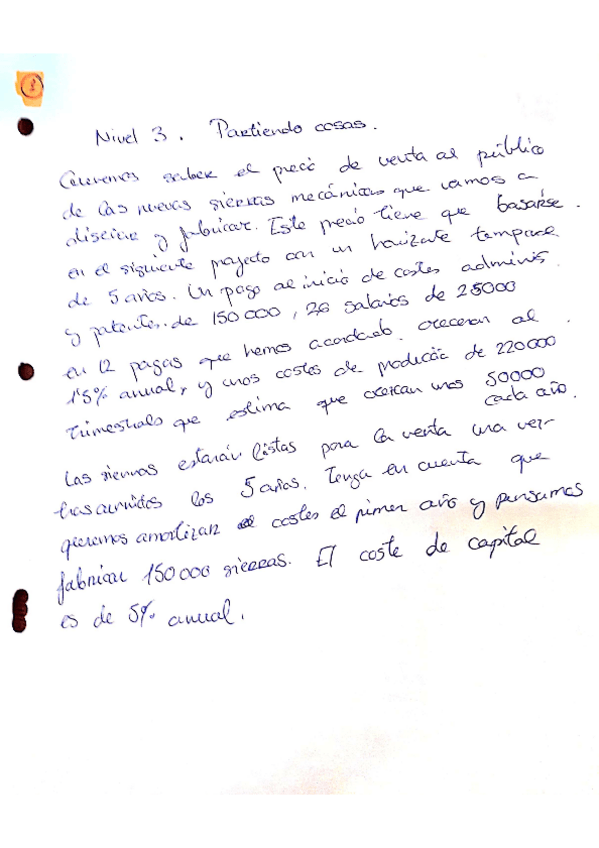 Nivel 3. Partiendo cosas.
Queremos saber el precio de venta al público
de las nuevas sierras mecánicas que vamos a
diseñar y fabricar. Este precio tiene que basarse
en el siguiente proyecto con un horizonte temporal
de 5 años. Un pago al inicio de costes adminis.
y patentes de 150000, 26 salarios de 25000
en 12 pagas que hemos acordado creceran al
1'5% anual, y unos costes de producción de 220000
trimestrales que estima que crezcan unos 50000
cada año.
Las sierras estarán listas para la venta una vez
trascurridos los 5 años. Tenga en cuenta que
queremos amortizar costes el primer año y pensamos
fabricar 150000 sierras. El coste de capital
es de 5% anual.